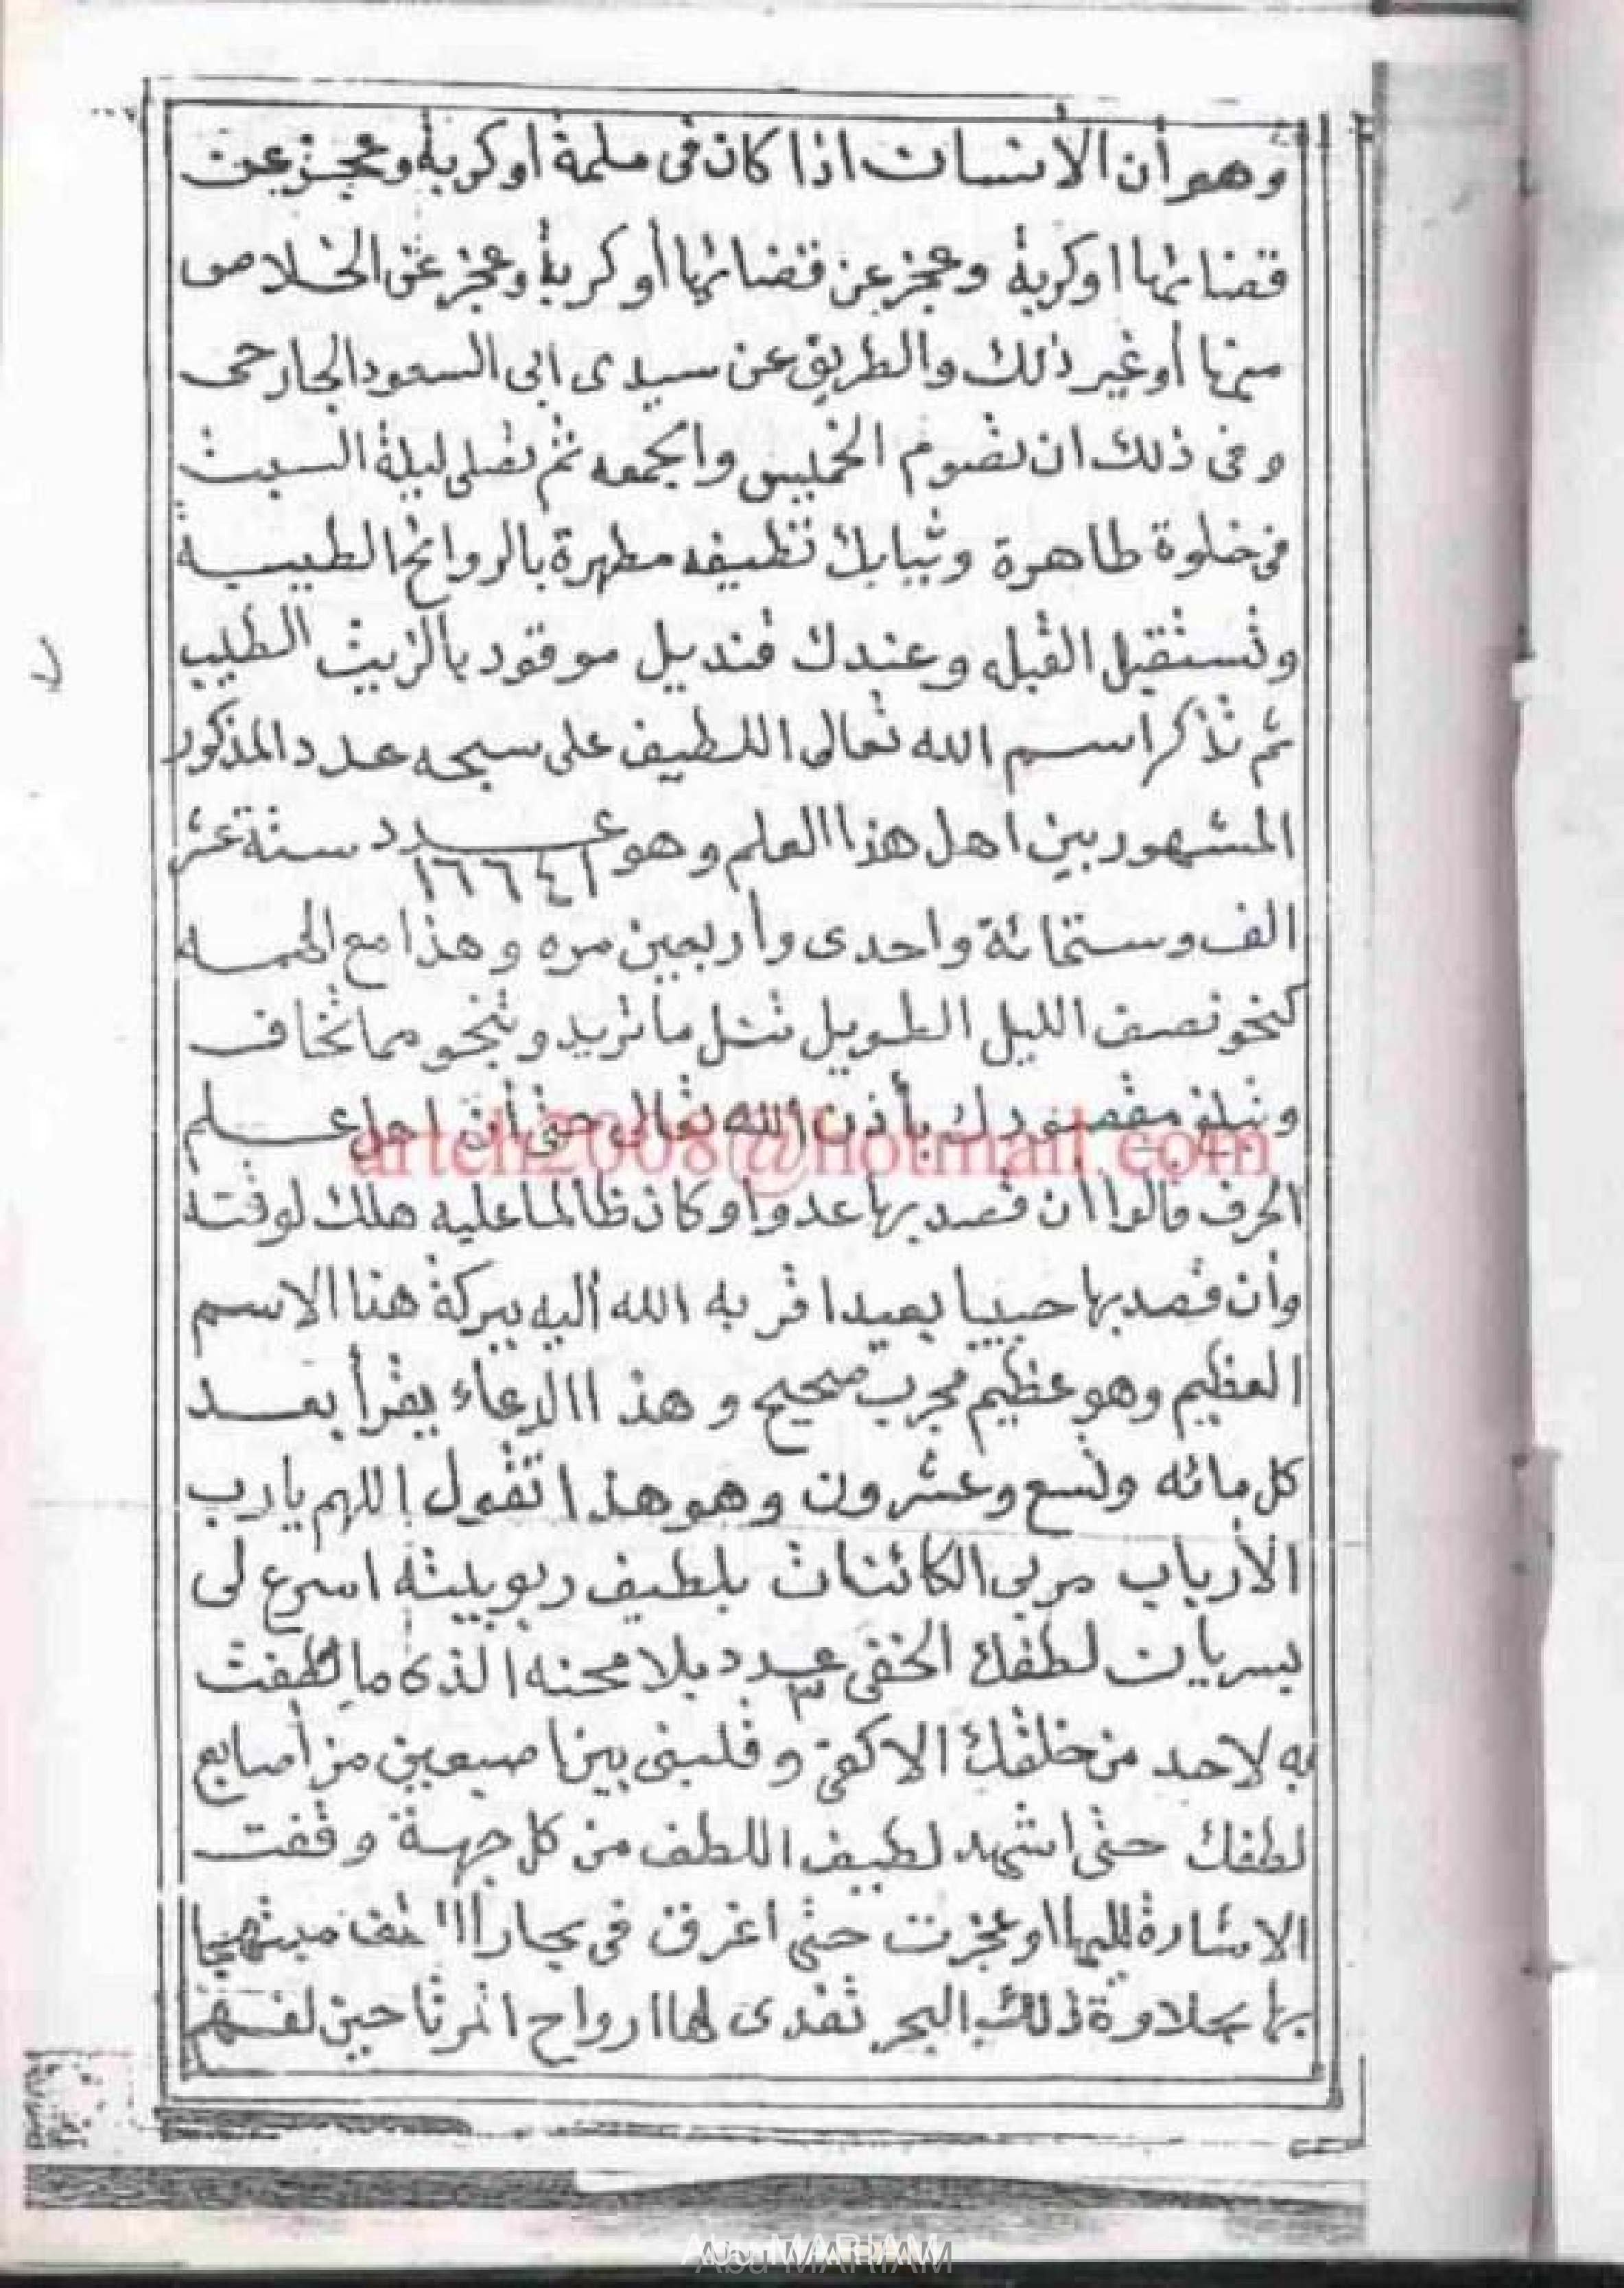 وهو أن الأنسان اذا كان فى ملمة أو كربة وعجز عن
قضائها اوكربة وعجز عن قضائها أو كربة وعجز عن الخلاص
منها أو غير ذلك والطريق عن سيدى ابى السعود الجارحى
وفى ذلك ان تصوم الخميس والجمعه ثم تصلى ليلة السبت
فى خلوة طاهرة وثيابك نظيفه مطهرة بالروائح الطيبة
وتستقبل القبله وعندك قنديل موقود بالزيت الطيب
ثم تذكر اسم الله تعالى اللطيف على سبحه عدد المذكور
المشهور بين اهل هذا العلم وهو عدد ستة عشر
١٦٦٤١
الف وستمائة واحدى وأربعين مره وهذا مع الهمه
كنحو نصف الليل الطويل تنل ما تريد وتنجو مما تخاف
وتبلغ مقصودك بأذن الله تعالى حتى أن اهل علم
الحرف قالوا ان قصد بها عدوا وكان ظالما عليه هلك لوقته
وأن قصد بها حبيبا بعيدا قربه الله أليه ببركة هنا الاسم
العظيم وهو عظيم مجرب صحيح وهذا الدعاء يقرأ بعد
كل مائه وتسع وعشرون وهو هذا تقول اللهم يارب
الأرباب مربى الكائنات بلطيف ربوبيته اسرع لى
بسريان لطفك الخفى عدد بلا محنه الذى ما لطفت
٣
به لاحد من خلقك الا كفى وقلبنى بين اصبعين من أصابع
لطفك حتى اشهد لطيف اللطف من كل جهة وقفت
الاشارة إليها اوعجزت حتى اغرق فى بحار مبتهجا
بها بحلاوة ذلك البحر تفدى لها ارواح حين
artch2008@hotmail.com
٧
Abu MARIAM